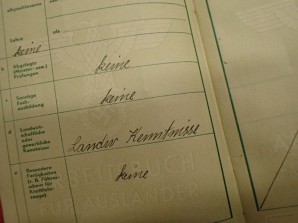 abgeschlossene
Lehre
keine
als
b
Abgelegte
(Meister- usw.)
Prüfungen
keine
c
Sonstige
Fach-
ausbildung
keine
d
Landwirt-
schaftliche
oder
gewerbliche
Kenntnisse
Landw Kenntnisse
e
Besondere
Fertigkeiten
(z. B. Führer-
schein für
Kraftfahr-
zeuge)
keine
ARBEITSBUCH